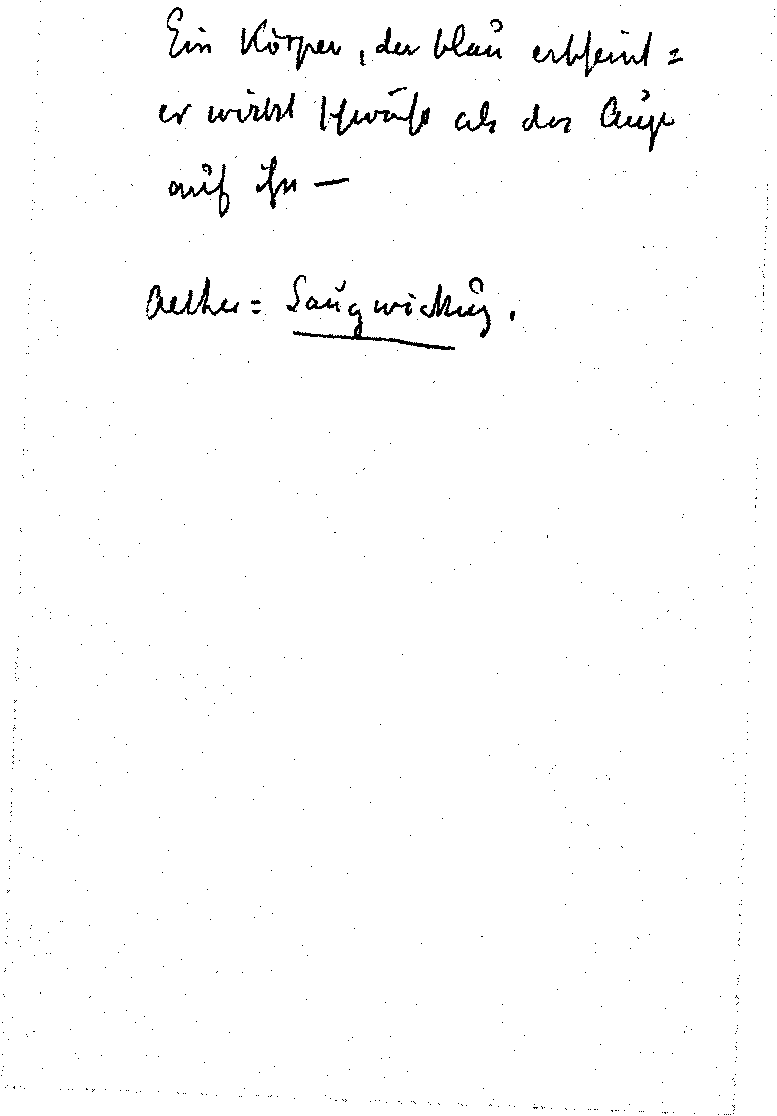 Ein Körper, der blau erscheint =
er wirkt schwächer als das Auge
auf ihn —
Aether = Saugwirkung.